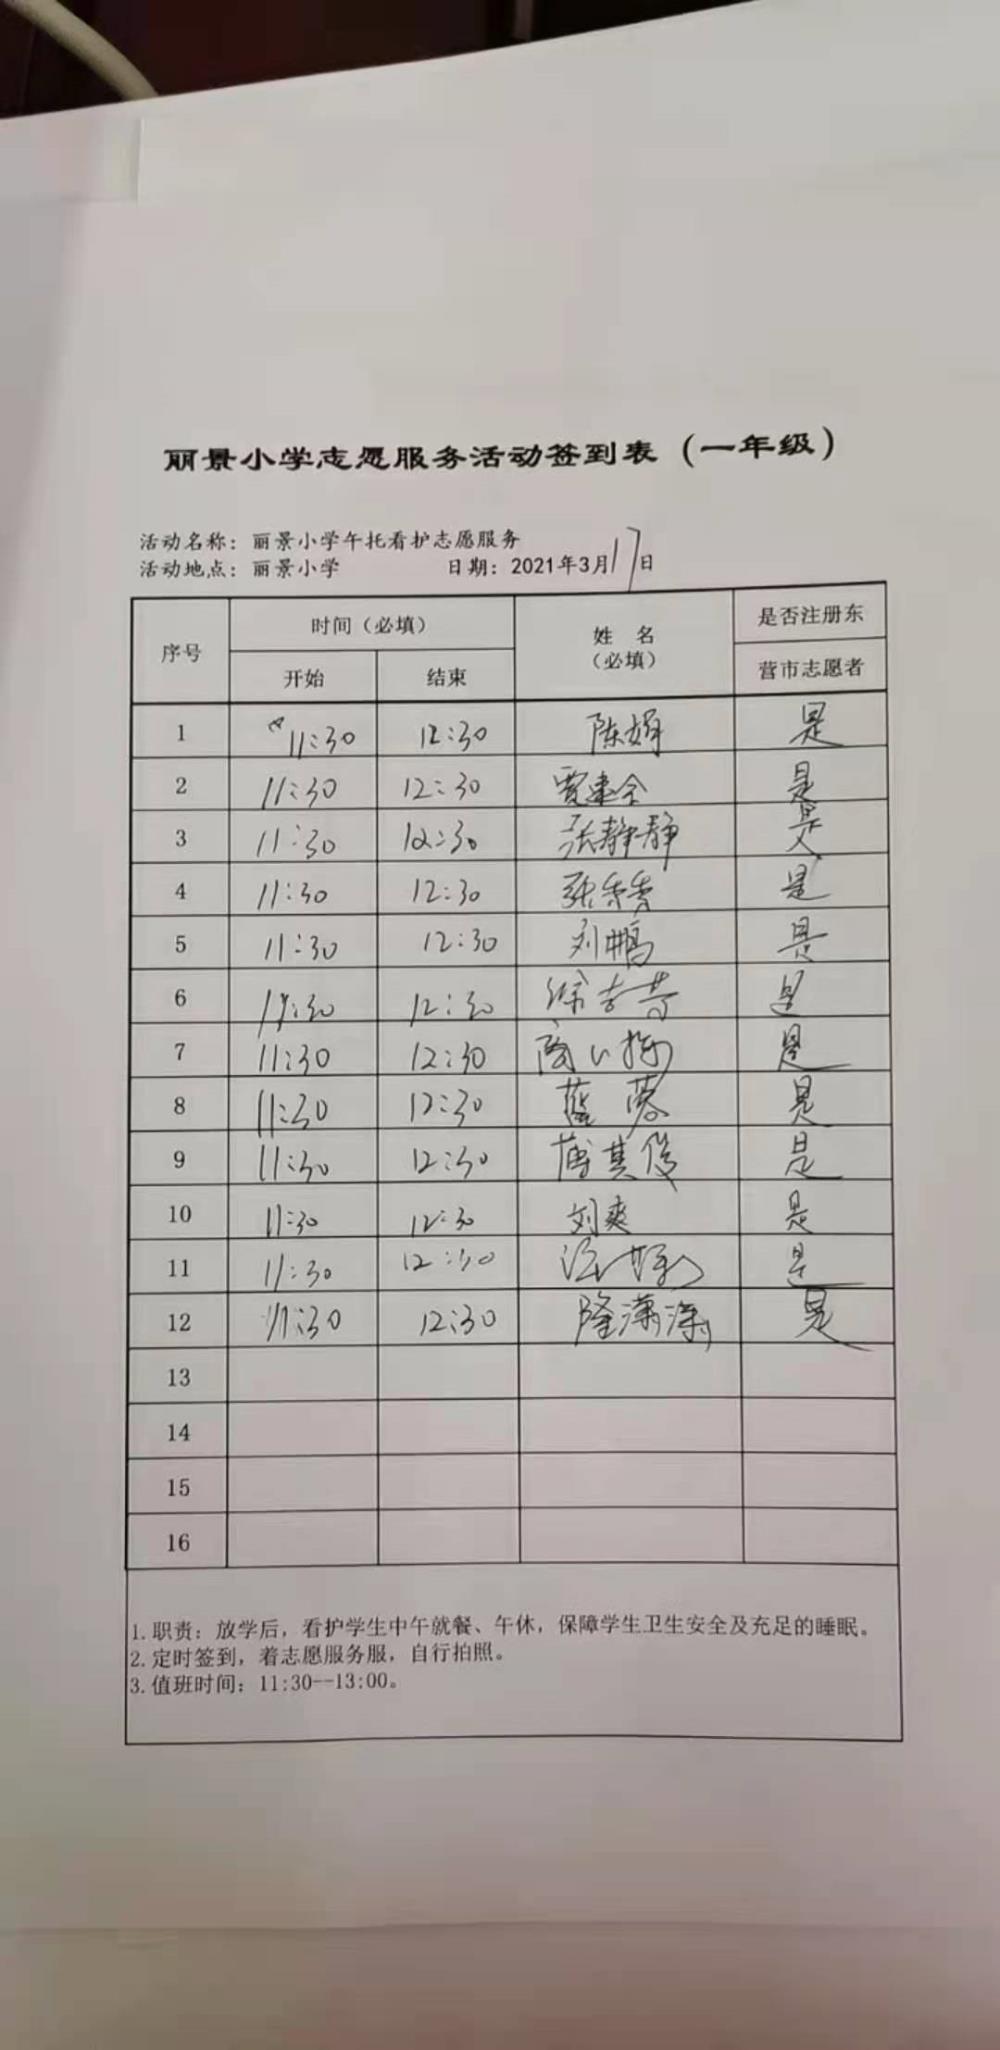 丽景小学志愿服务活动签到表（一年级）
活动名称：丽景小学午托看护志愿服务
活动地点：丽景小学 日期：2021年3月17日
序号 时间（必填） 姓 名 （必填） 是否注册东
开始 结束 营市志愿者
1 11:30 12:30 陈娟 是
2 11:30 12:30 贾建全 是
3 11:30 12:30 张静静 是
4 11:30 12:30 张秀秀 是
5 11:30 12:30 刘鹏 是
6 11:30 12:30 徐吉芳 是
7 11:30 12:30 是
8 11:30 12:30 是
9 11:30 12:30 薄其俊 是
10 11:30 12:30 刘爽 是
11 11:30 12:30 是
12 11:30 12:30 隆潇潇 是
13
14
15
16
1.职责：放学后，看护学生中午就餐、午休，保障学生卫生安全及充足的睡眠。
2.定时签到，着志愿服务服，自行拍照。
3.值班时间：11:30--13:00。